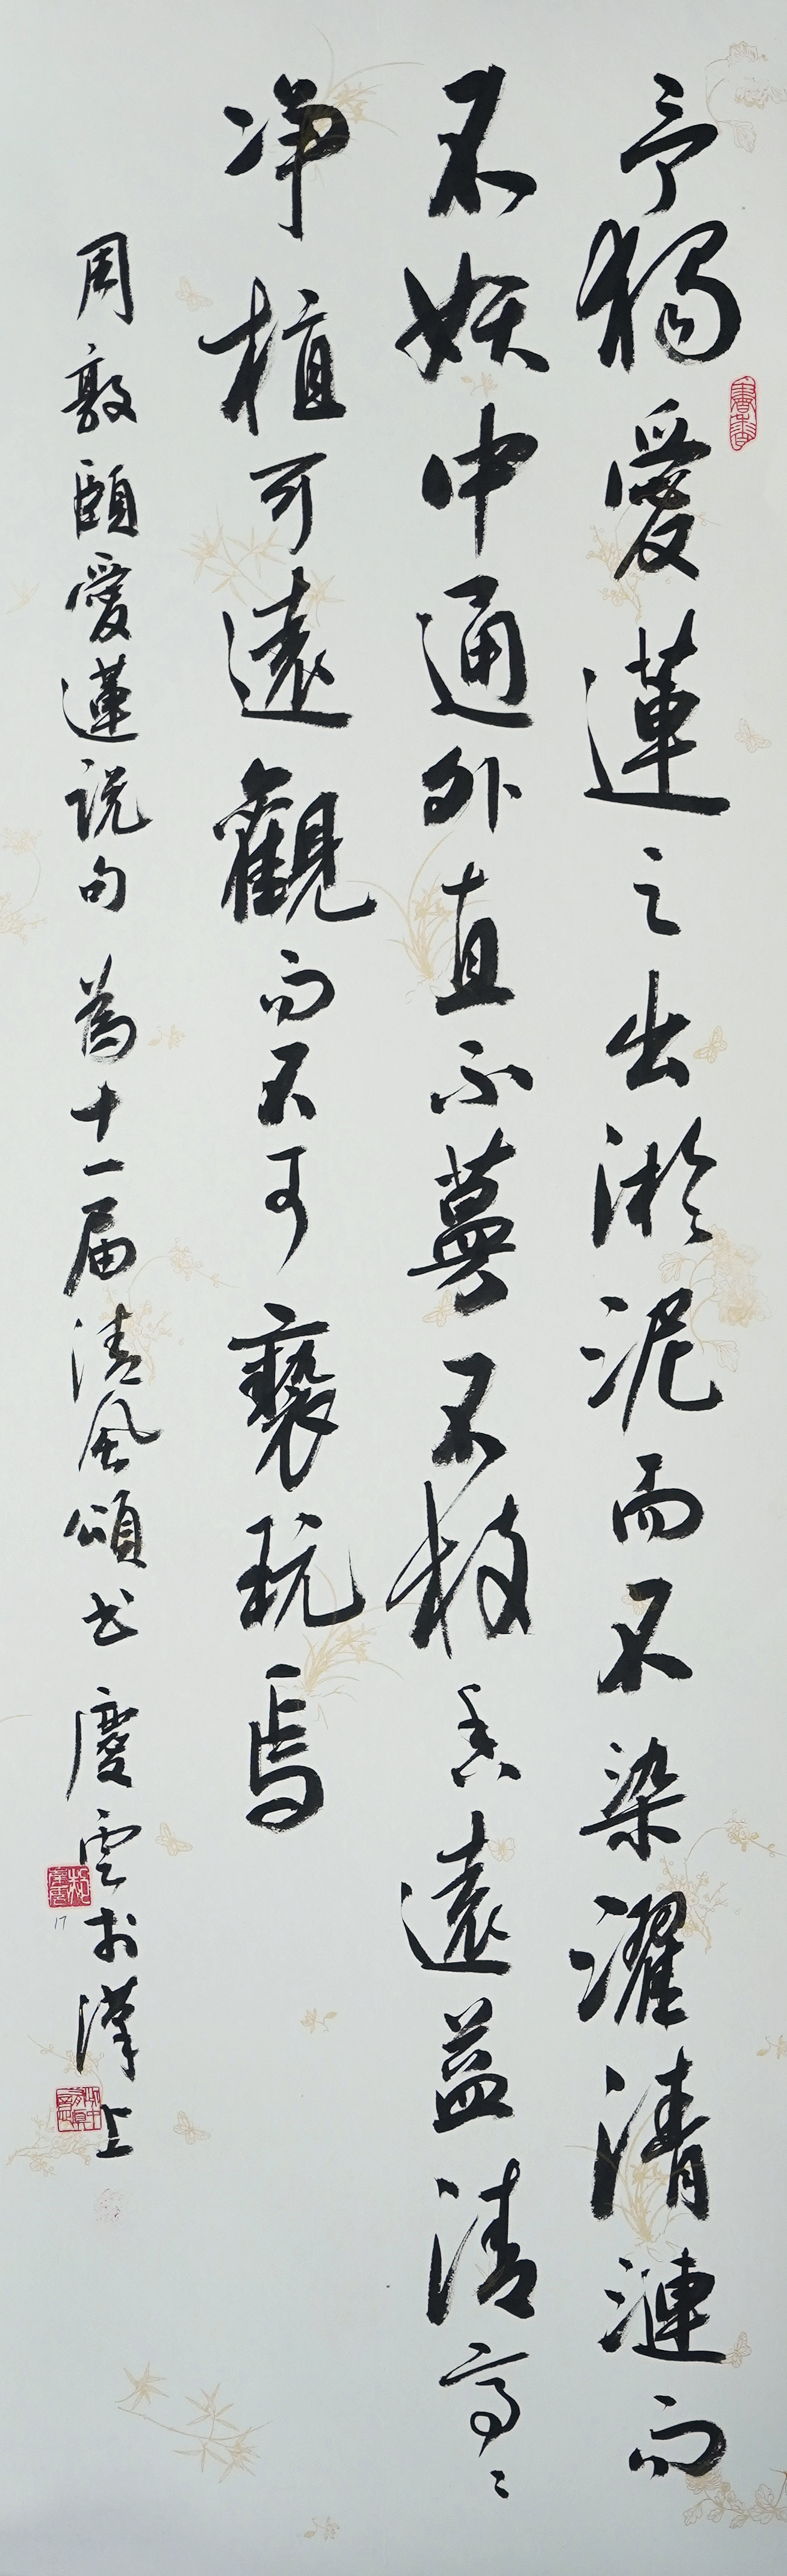 予獨愛蓮之出淤泥而不染濯清漣而
不妖中通外直不蔓不枝香遠益清亭〻
净植可遠觀而不可褻玩焉
周敦頤愛蓮説句 為十一届清風頌书 慶雲於漢上
17